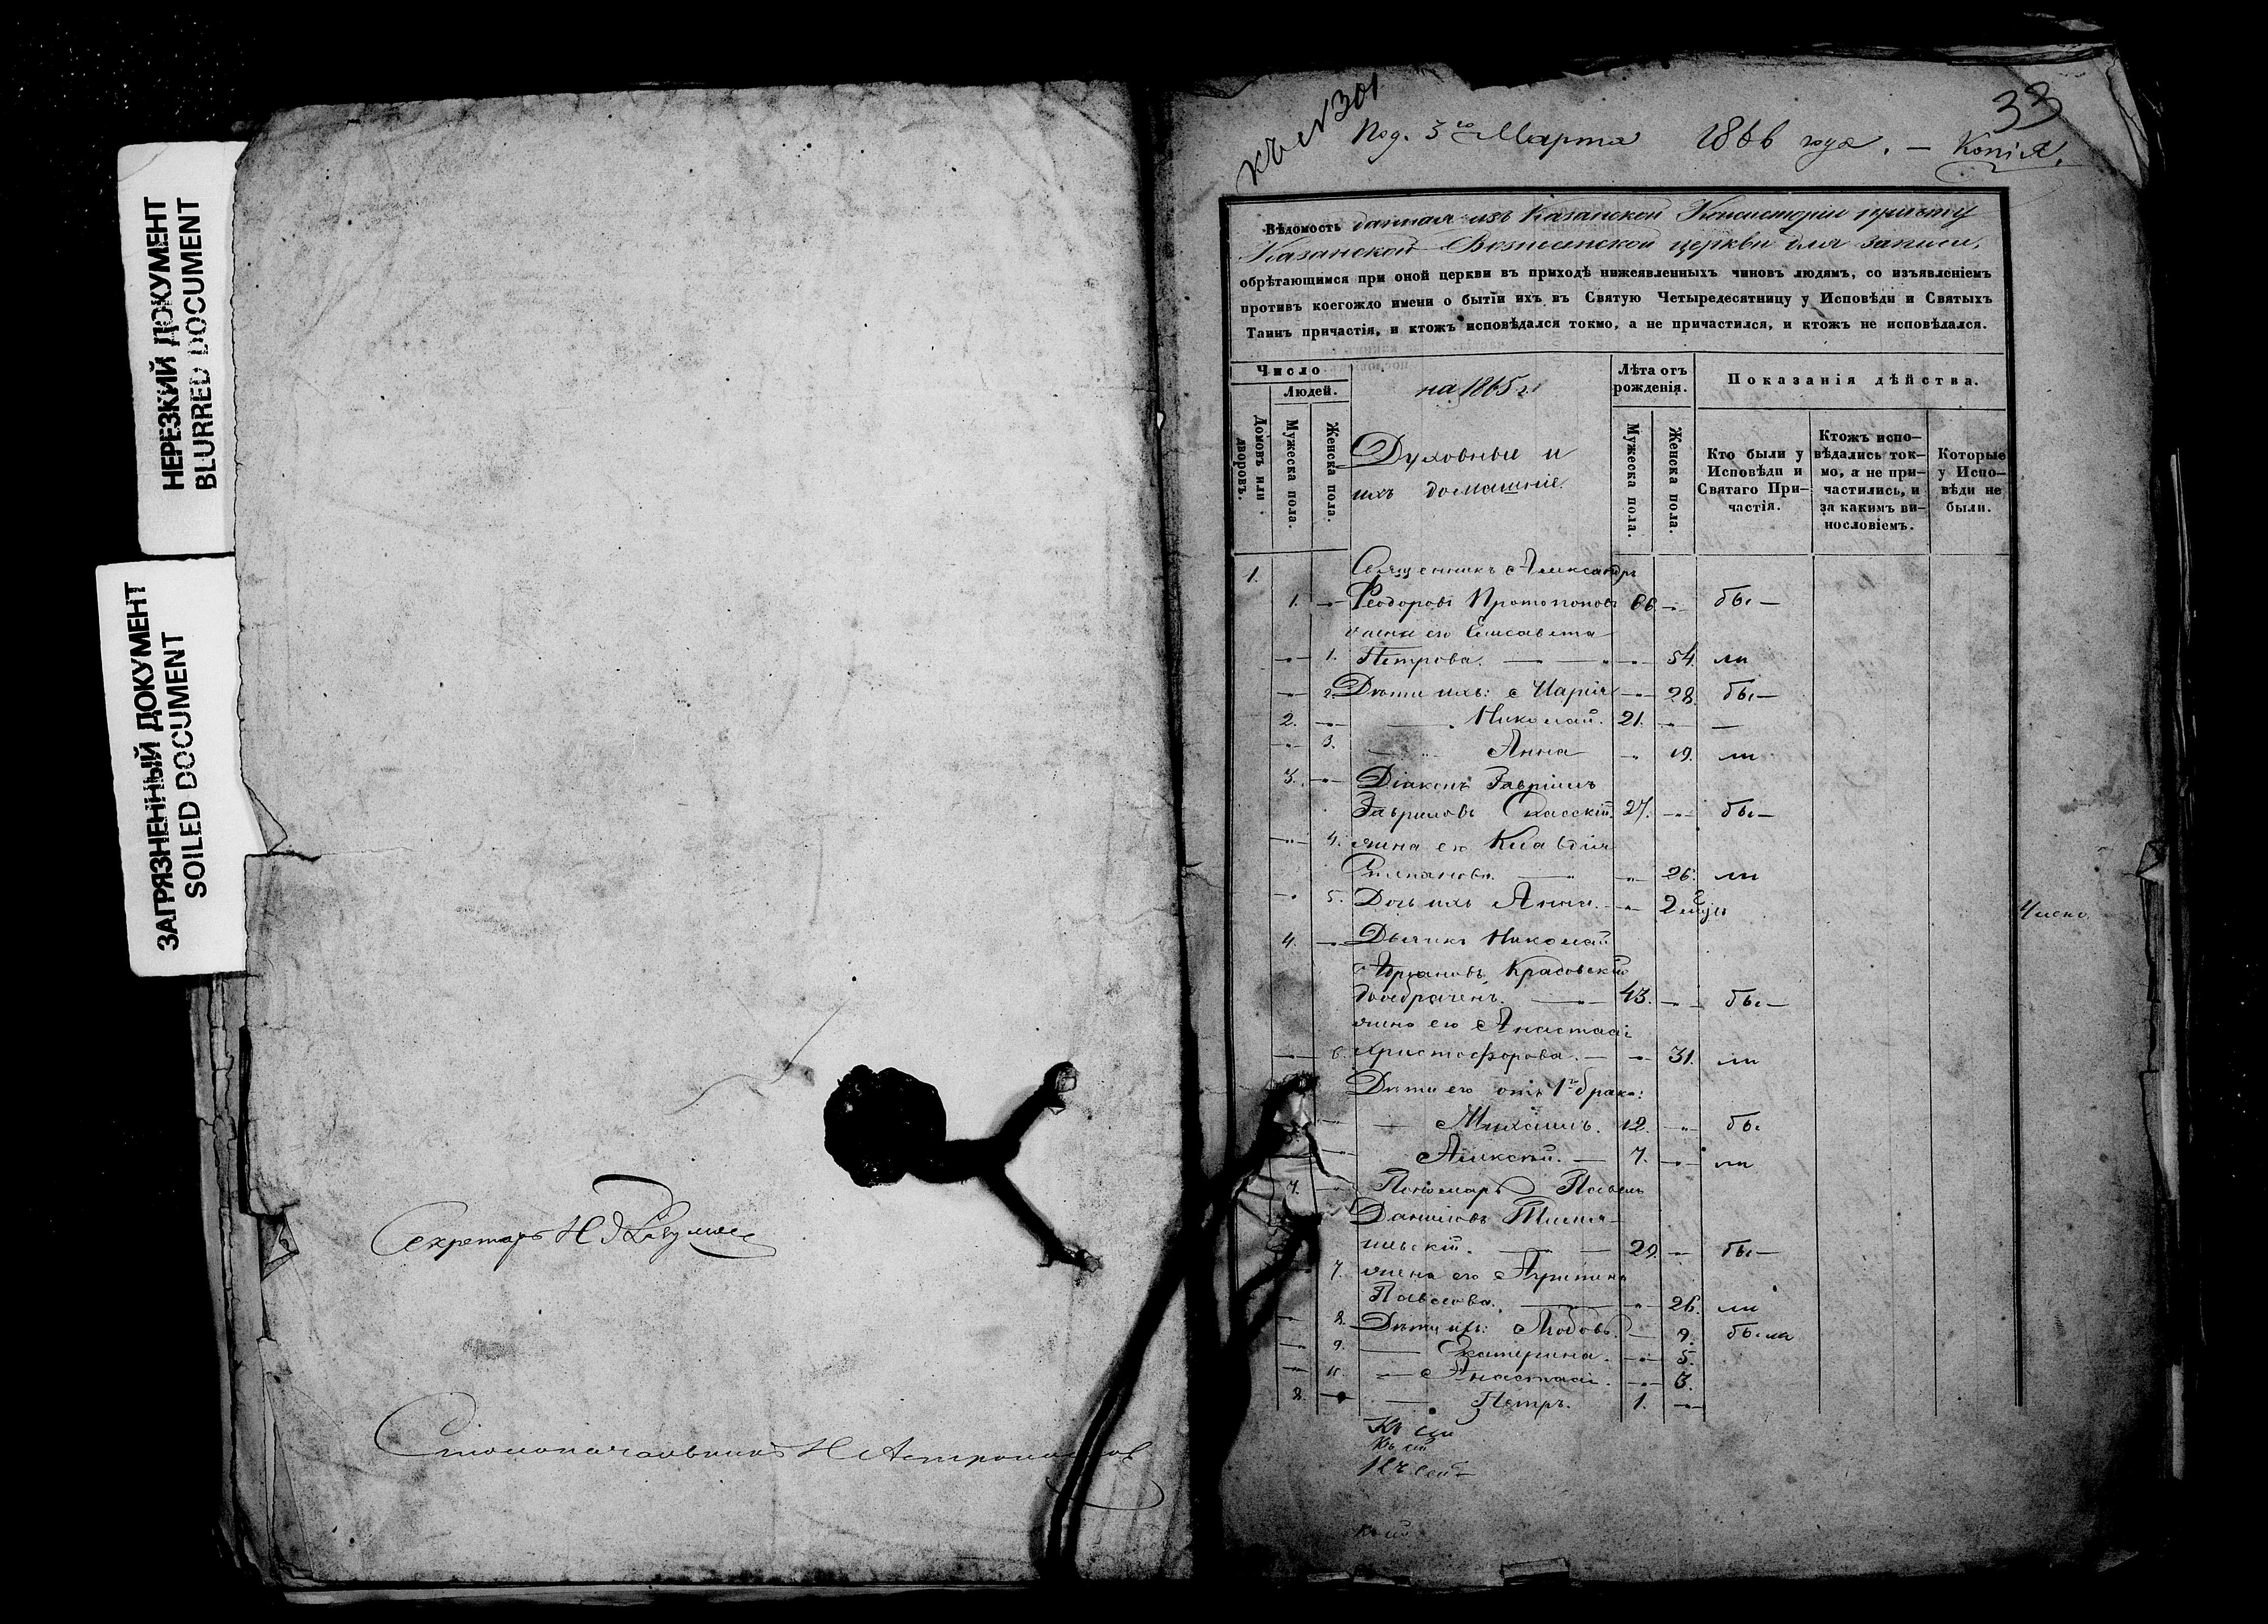 НЕРЕЗКИЙ ДОКУМЕНТ
BLURRED DOCUMENT
ЗАГРЯЗНЕННЫЙ ДОКУМЕНТ
SOILED DOCUMENT
Секретарь Н
Столоначальникъ Н
къ №301
33
Под. 3го Марта 1866 года. — Копія.
Вѣдомость данная изъ Казанской Консисторіи причту
Казанской Вознесенской церкви для записи,
обрѣтающимся при оной церкви въ приходѣ нижеявленныхъ чиновъ людямъ, со изъявленіемъ
противъ коегождо имени о бытіи ихъ въ Святую Четыредесятницу у Исповѣди и Святыхъ
Таинъ причастія, и ктожъ исповѣдался токмо, а не причастился, и ктожъ не исповѣдался.
Число
Людей.
Домовъ или дворовъ.
Мужеска пола.
Женска пола.
на 1865 г.
Духовные и
ихъ домашніе.
Лѣта отъ рожденія.
Мужеска пола.
Женска пола.
Показанія дѣйства.
Кто были у Исповѣди и Святаго При-частія.
Ктожъ испо-вѣдались ток-мо, а не при-частились, и за какимъ ви-нословіемъ.
Которые у Испо-вѣди не были.
1. Священникъ Александръ
1. — Ѳеодоровъ Протопоповъ 66 — бы—
жена его Елисавета
— 1. Петрова. — — 54. ли
— 2. Дѣти ихъ: Марія — 28. бы—
2. — Николай. 21. — —
— 3. Анна — 19. ли
3. — Діаконъ Гавріилъ
Гавриловъ Спасскій. 27. — бы—
— 4. жена его Клавдія
Степанова. — — 26. ли
— 5. Дочь ихъ Анна. — 2
4. — Дьячекъ Николай
Адріановъ Красовскій
двоебраченъ. — 43. — бы—
жена его Анастасі
— 6. Христофорова. — — 31. ли
Дѣти его отъ 1го брака:
— Михаилъ. 12. — бы
— Алексѣй. — 7. — ли
7. — Пономарь Павелъ
Даниловъ
— 29. — бы—
7. жена его Агрипина
Павлова. — — 26. ли
— 8. Дѣти ихъ: Любовь. — 9. была
— 9. — Екатерина. — 5.
— 10. — Анастасі. — 3.
8. — — Петръ. 1. —
Къ сей
Къ сей
Къ сей